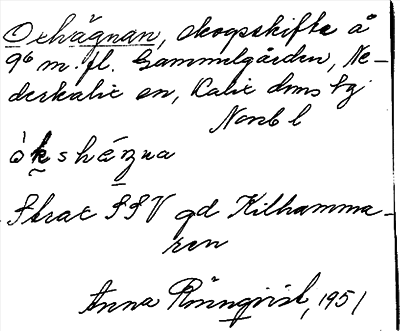 Oxhägnan, skogsskifte å
9⁶ m. fl. Gammelgården, Ne-
derkalix sn, Kalix dms tg
Norrb l
ò k s h ǽ ŋ n a
Strax SSV gd Kilhamma-
ren
Anna Rönnqvist, 1951